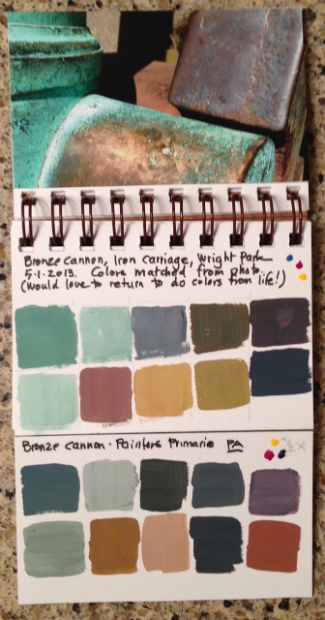 Bronze Cannon, Iron Carriage, Wright Park
5-1-2013. Colors matched from photo.
(Would love to return to do colors from life!)
Bronze Cannon · Painters Primarie PA